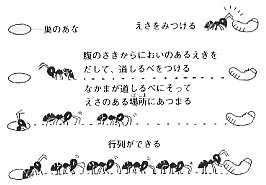 巣のあな
えさをみつける
腹のさきからにおいのあるえきを
だして、道しるべをつける
なかまが道しるべにそって
えさのある場所にあつまる
行列ができる